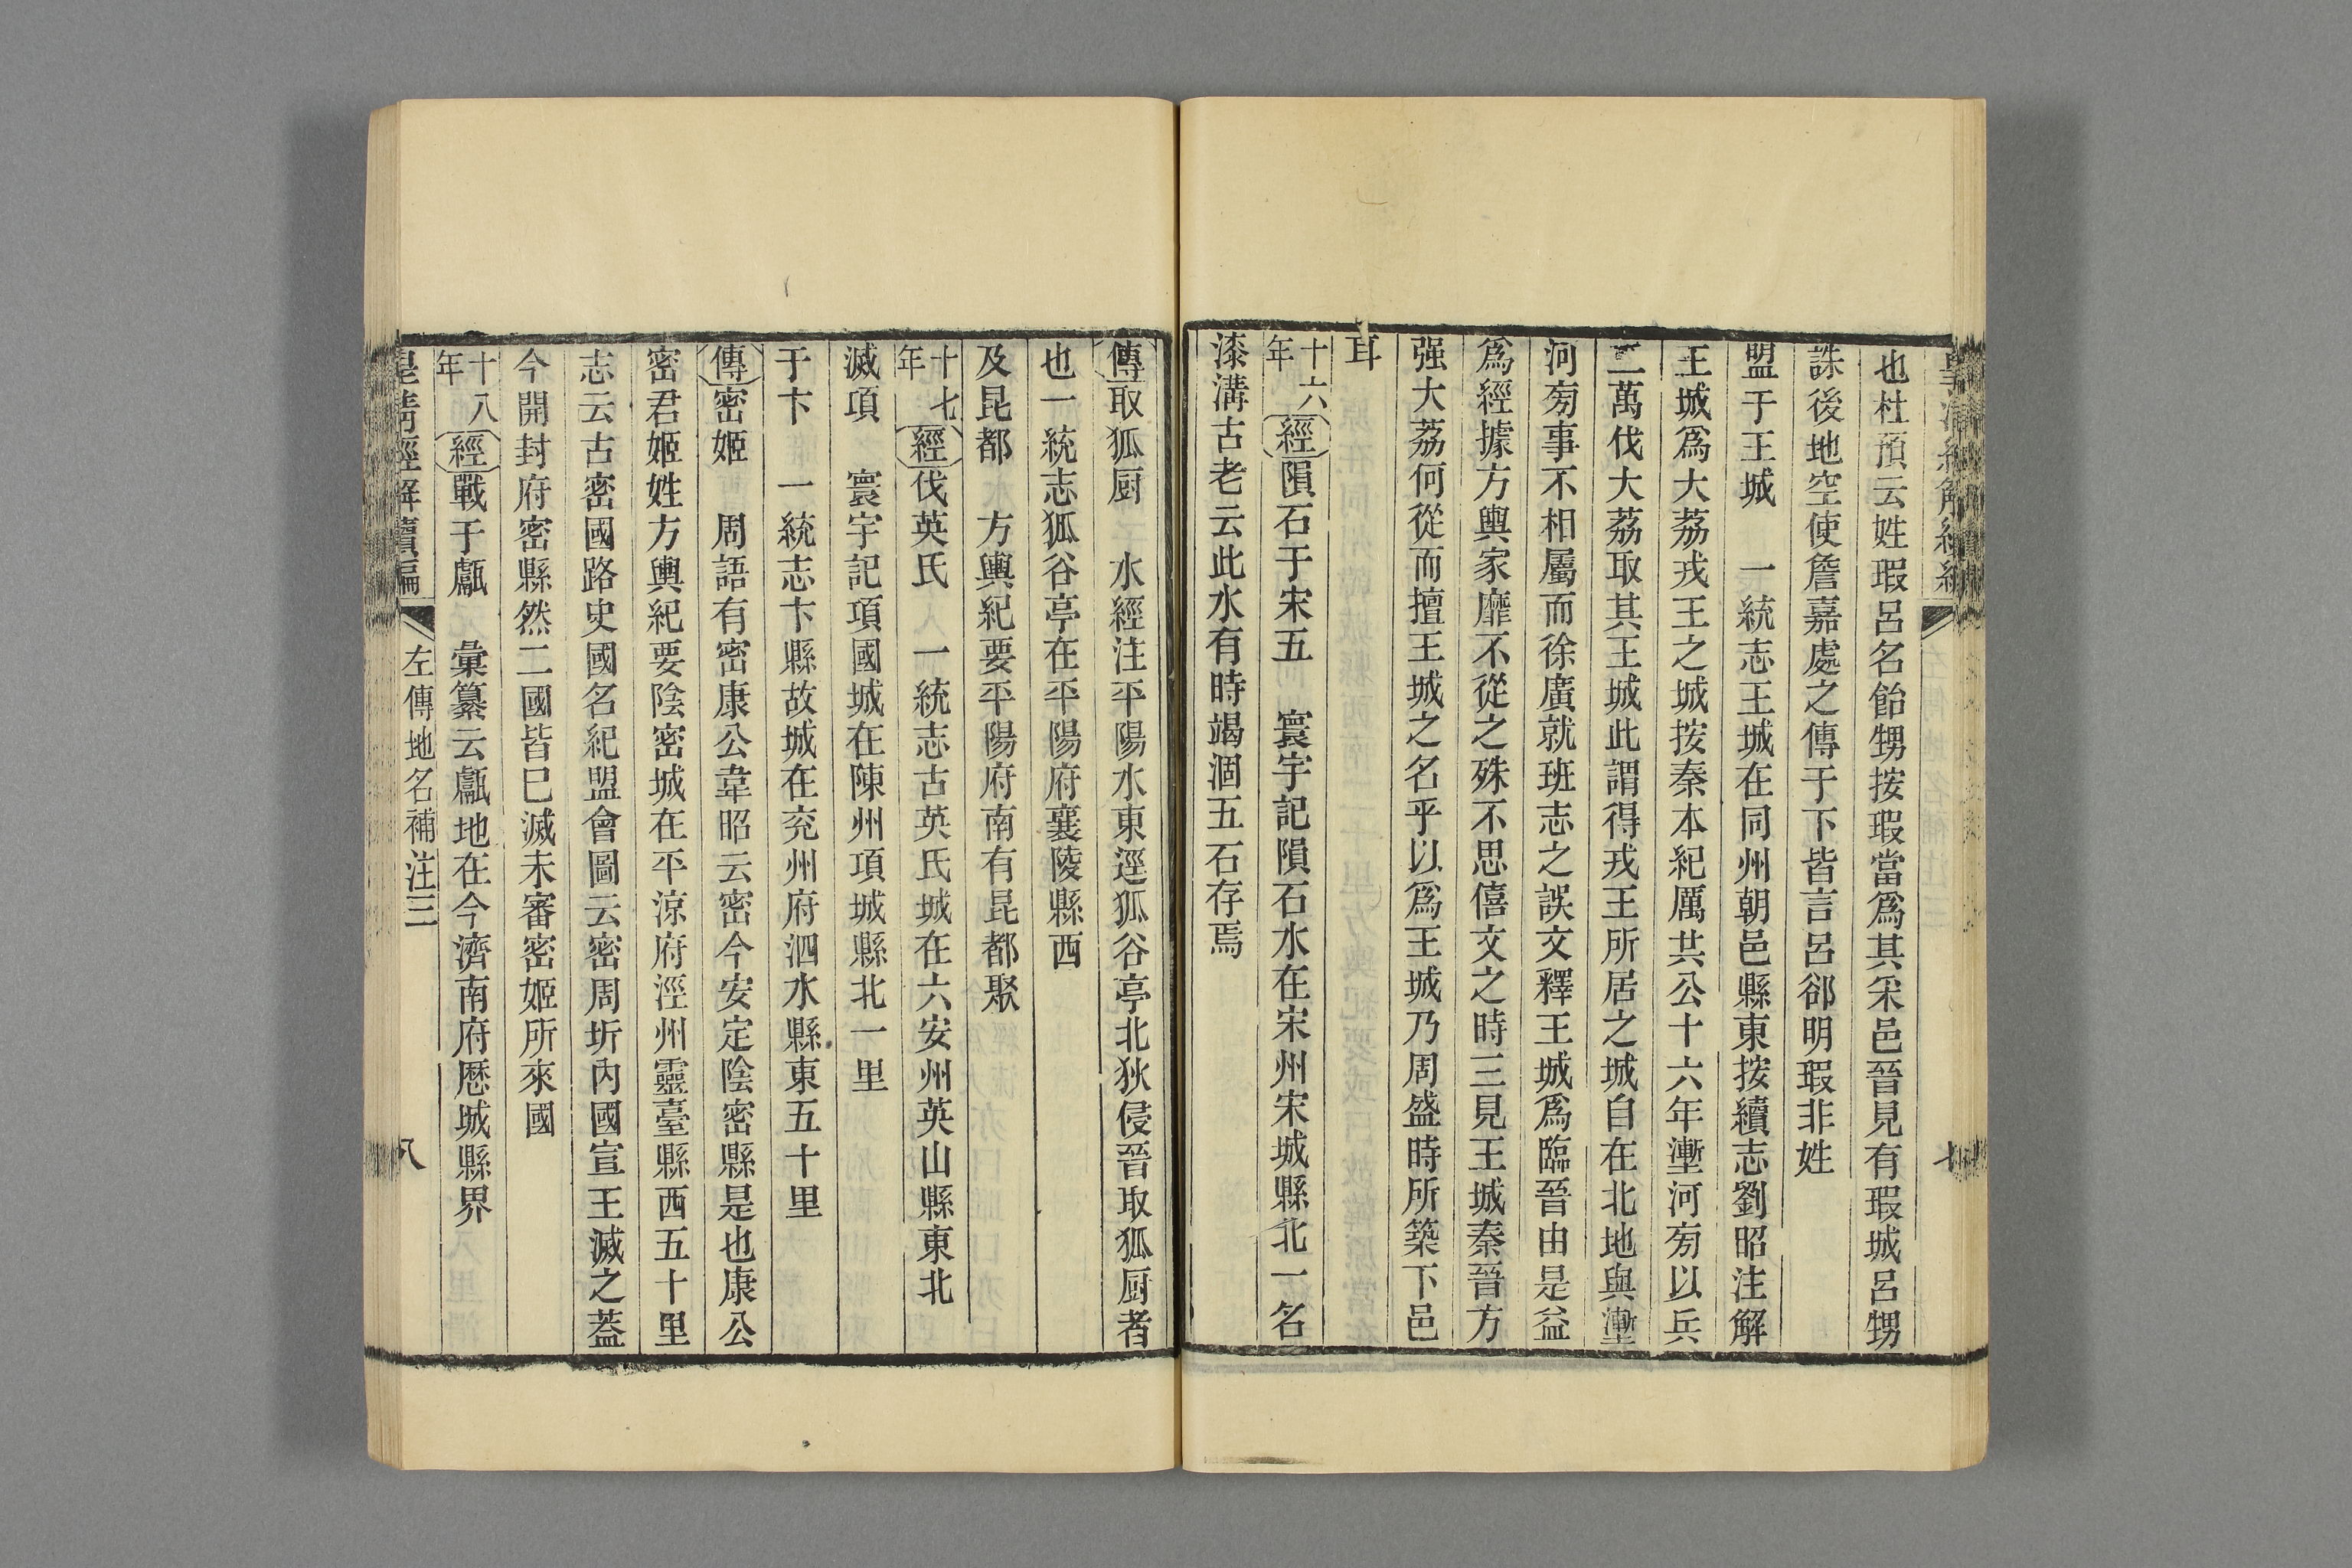 也杜預云姓瑕呂名飴甥按瑕當爲其采邑晉見有瑕城呂甥
誅後地空使詹嘉處之傳于下皆言呂郤明瑕非姓
盟于王城　一統志王城在同州朝邑縣東按續志劉昭注解
王城爲大荔戎王之城按秦本紀厲共公十六年塹河旁以兵
二萬伐大荔取其王城此謂得戎王所居之城自在北地與塹
河旁事不相屬而徐廣就班志之誤文釋王城爲臨晉由是益
爲經據方輿家靡不從之殊不思僖文之時三見王城秦晉方
强大荔何從而擅王城之名乎以爲王城乃周盛時所築下邑
耳
十六年經隕石于宋五　寰宇記隕石水在宋州宋城縣北一名
漆溝古老云此水有時竭涸五石存焉
傳取狐厨　水經注平陽水東逕狐谷亭北狄侵晉取狐厨者
也一統志狐谷亭在平陽府襄陵縣西
及昆都　方輿紀要平陽府南有昆都聚
十七年經伐英氏　一統志古英氏城在六安州英山縣東北
滅項　寰宇記項國城在陳州項城縣北一里
于卞　一統志卞縣故城在兖州府泗水縣東五十里
傳密姬　周語有密康公韋昭云密今安定陰密縣是也康公
密君姬姓方輿紀要陰密城在平涼府涇州靈臺縣西五十里
志云古密國路史國名紀盟會圖云密周圻內國宣王滅之葢
今開封府密縣然二國皆巳滅未審密姬所來國
十八年經戰于甗　彙纂云甗地在今濟南府歷城縣界
皇清經解續編　左傳地名補注三　八